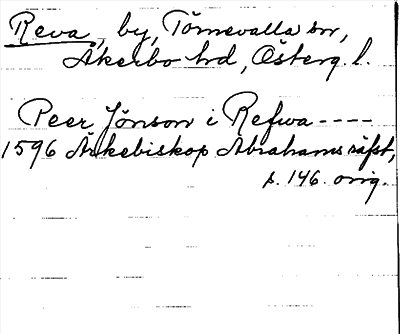 Reva, by, Törnevalla sn,
Åkerbo hd, Österg. l.
Peer Jönson i Refwa ----
1596 Ärkebiskop Abrahams räfst,
s. 146. orig.